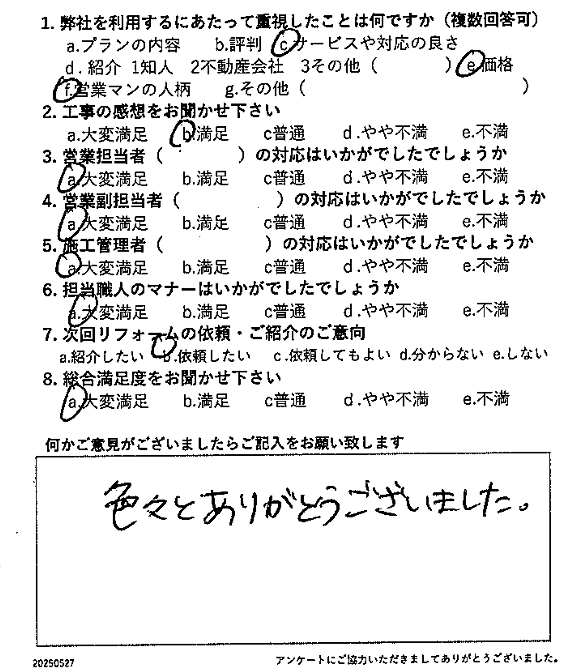 1. 弊社を利用するにあたって重視したことは何ですか（複数回答可）
a.プランの内容　b.評判　c.サービスや対応の良さ
d.紹介 1知人　2不動産会社　3その他（　　　　）e.価格
f.営業マンの人柄　g.その他（　　　　　　　　　　　　　）
2. 工事の感想をお聞かせ下さい
a.大変満足　b.満足　c普通　d.やや不満　e.不満
3. 営業担当者（　　　　　）の対応はいかがでしたでしょうか
a.大変満足　b.満足　c普通　d.やや不満　e.不満
4. 営業副担当者（　　　　　　）の対応はいかがでしたでしょうか
a.大変満足　b.満足　c普通　d.やや不満　e.不満
5. 施工管理者（　　　　　　）の対応はいかがでしたでしょうか
a.大変満足　b.満足　c普通　d.やや不満　e.不満
6. 担当職人のマナーはいかがでしたでしょうか
a.大変満足　b.満足　c普通　d.やや不満　e.不満
7. 次回リフォームの依頼・ご紹介のご意向
a.紹介したい　b.依頼したい　c.依頼してもよい d.分からない e.しない
8. 総合満足度をお聞かせ下さい
a.大変満足　b.満足　c普通　d.やや不満　e.不満
何かご意見がございましたらご記入をお願い致します
色々とありがとうございました。
20250527　アンケートにご協力いただきましてありがとうございました。